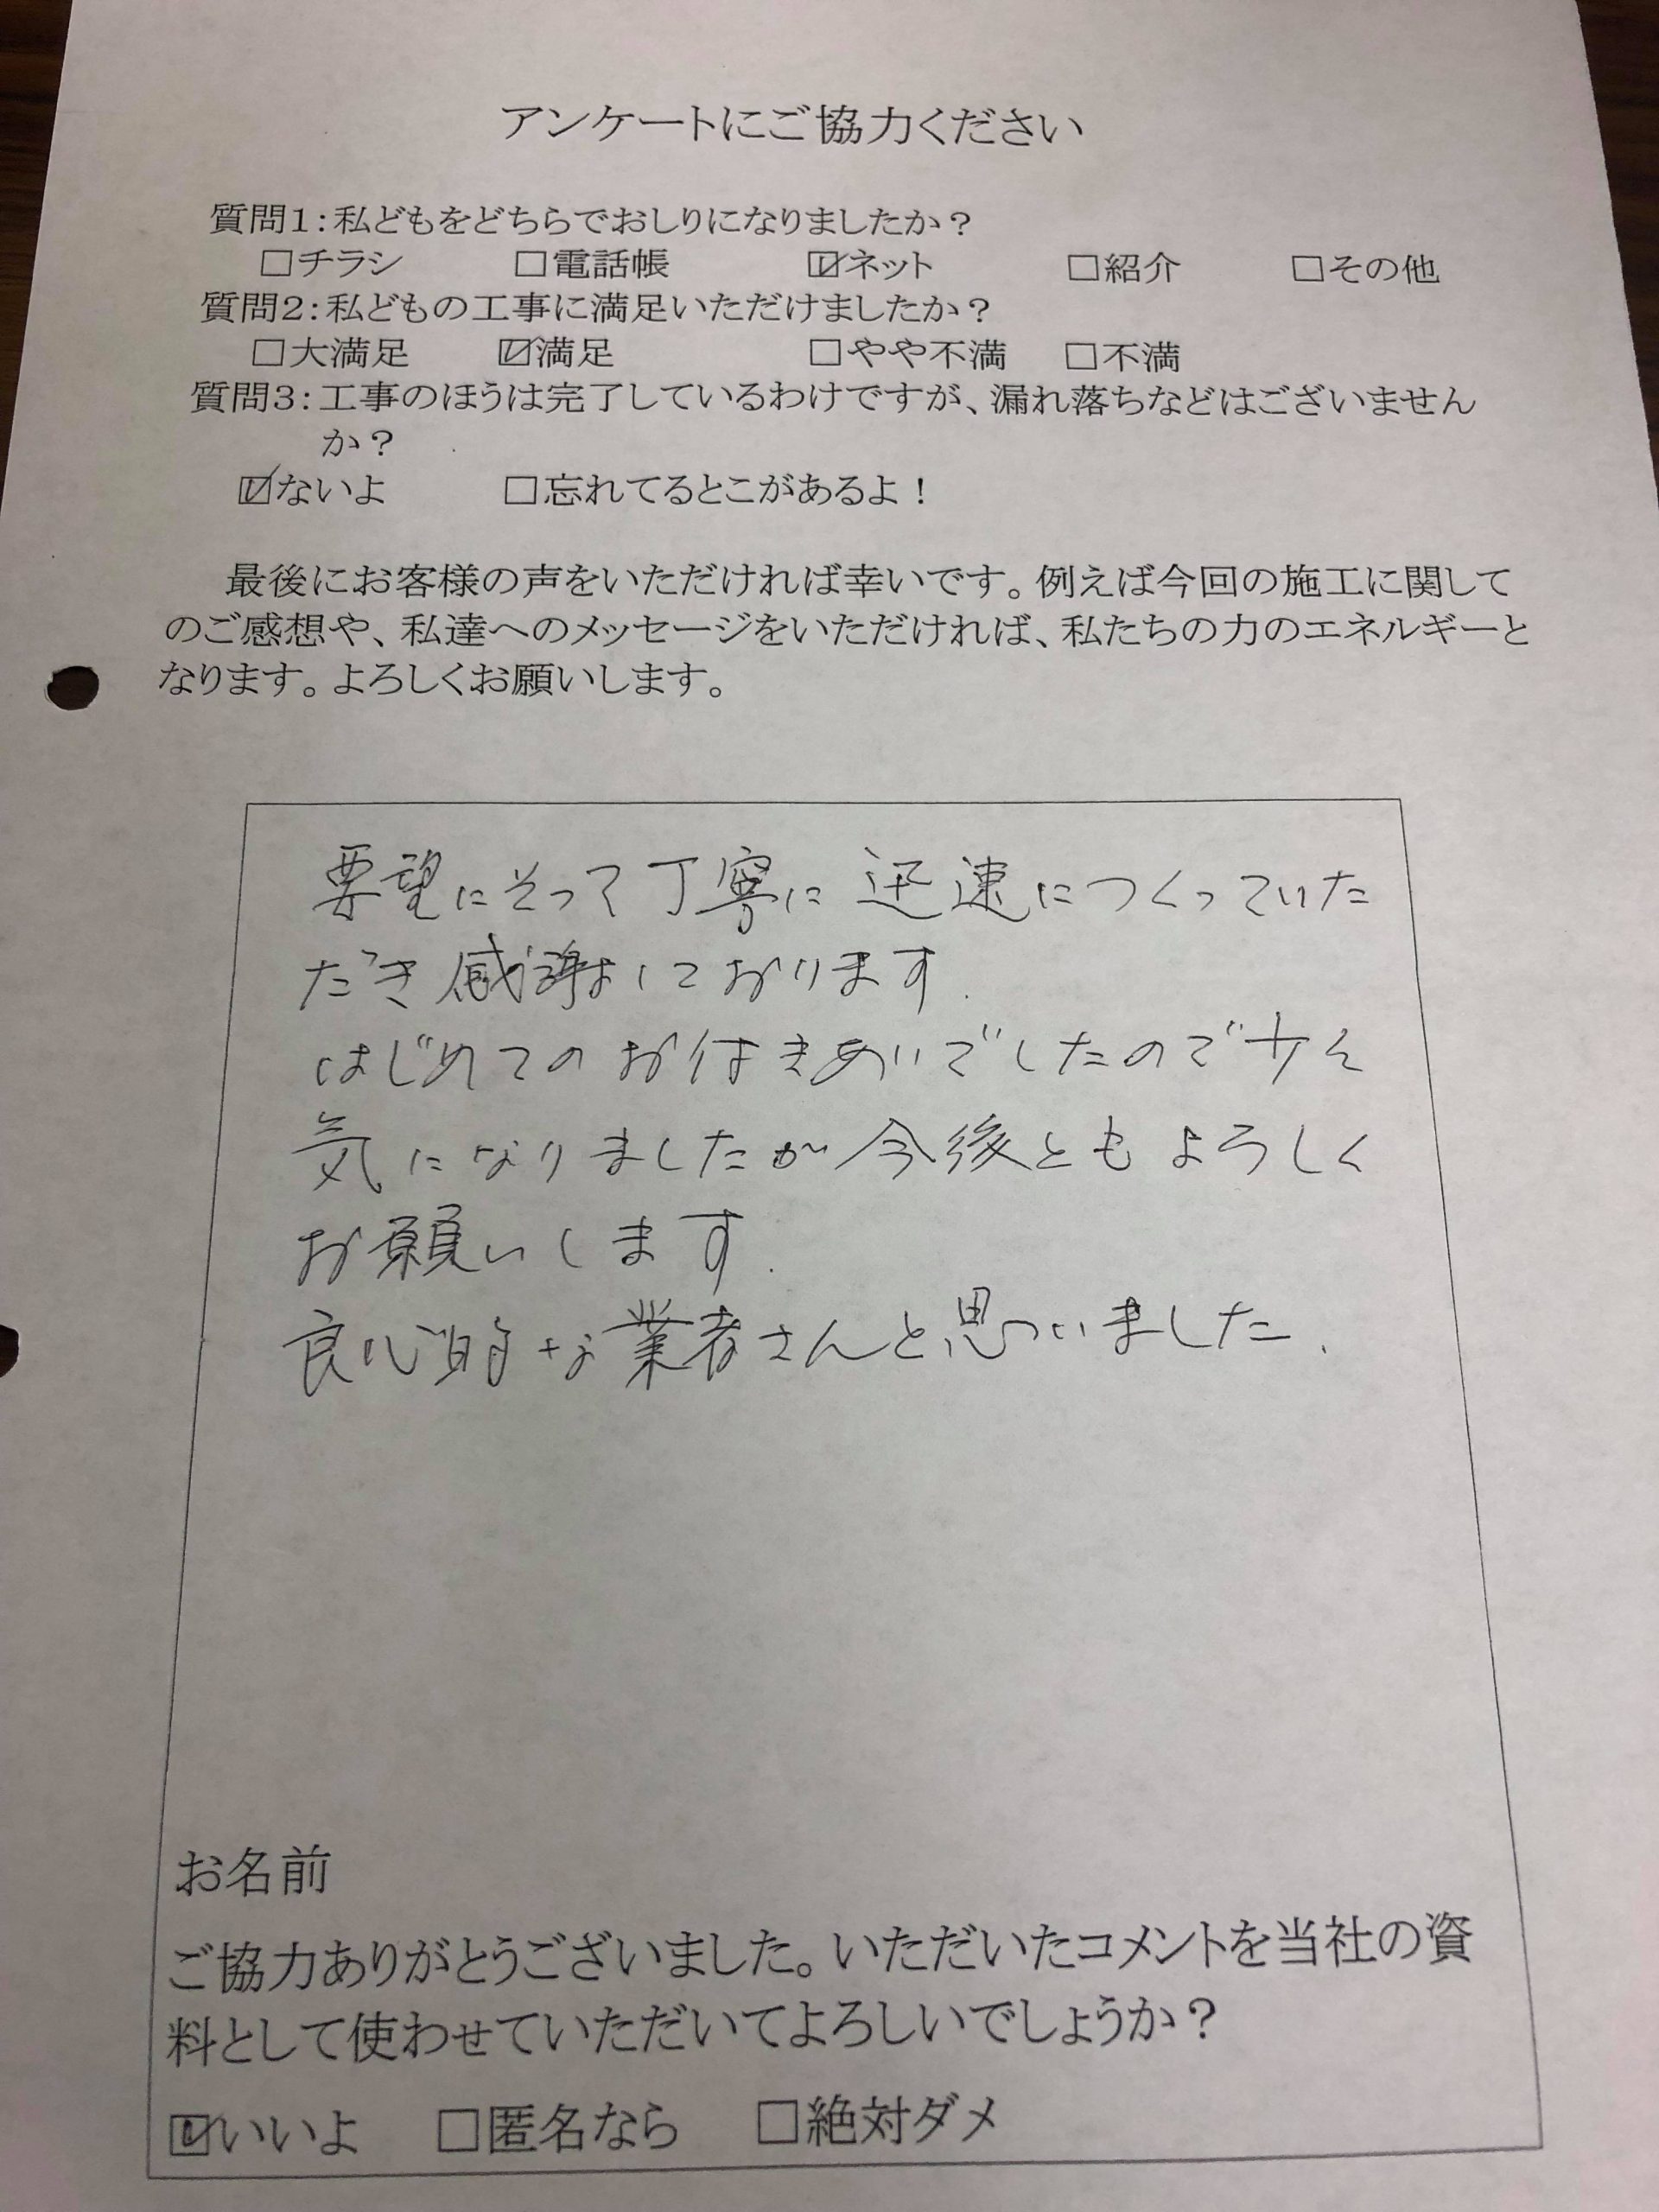 アンケートにご協力ください
質問1:私どもをどちらでおしりになりましたか?
□チラシ □電話帳 ☑ネット □紹介 □その他
質問2:私どもの工事に満足いただけましたか?
□大満足 ☑満足 □やや不満 □不満
質問3:工事のほうは完了しているわけですが、漏れ落ちなどはございません
か?
☑ないよ □忘れてるとこがあるよ!
最後にお客様の声をいただければ幸いです。例えば今回の施工に関して
のご感想や、私達へのメッセージをいただければ、私たちの力のエネルギーと
なります。よろしくお願いします。
要望にそって丁寧に迅速につくっていた
だき感謝しております.
はじめてのお付きあいでしたので少々
気になりましたが今後ともよろしく
お願いします.
良心的な業者さんと思いました.
お名前
ご協力ありがとうございました。いただいたコメントを当社の資
料として使わせていただいてよろしいでしょうか?
☑いいよ □匿名なら □絶対ダメ